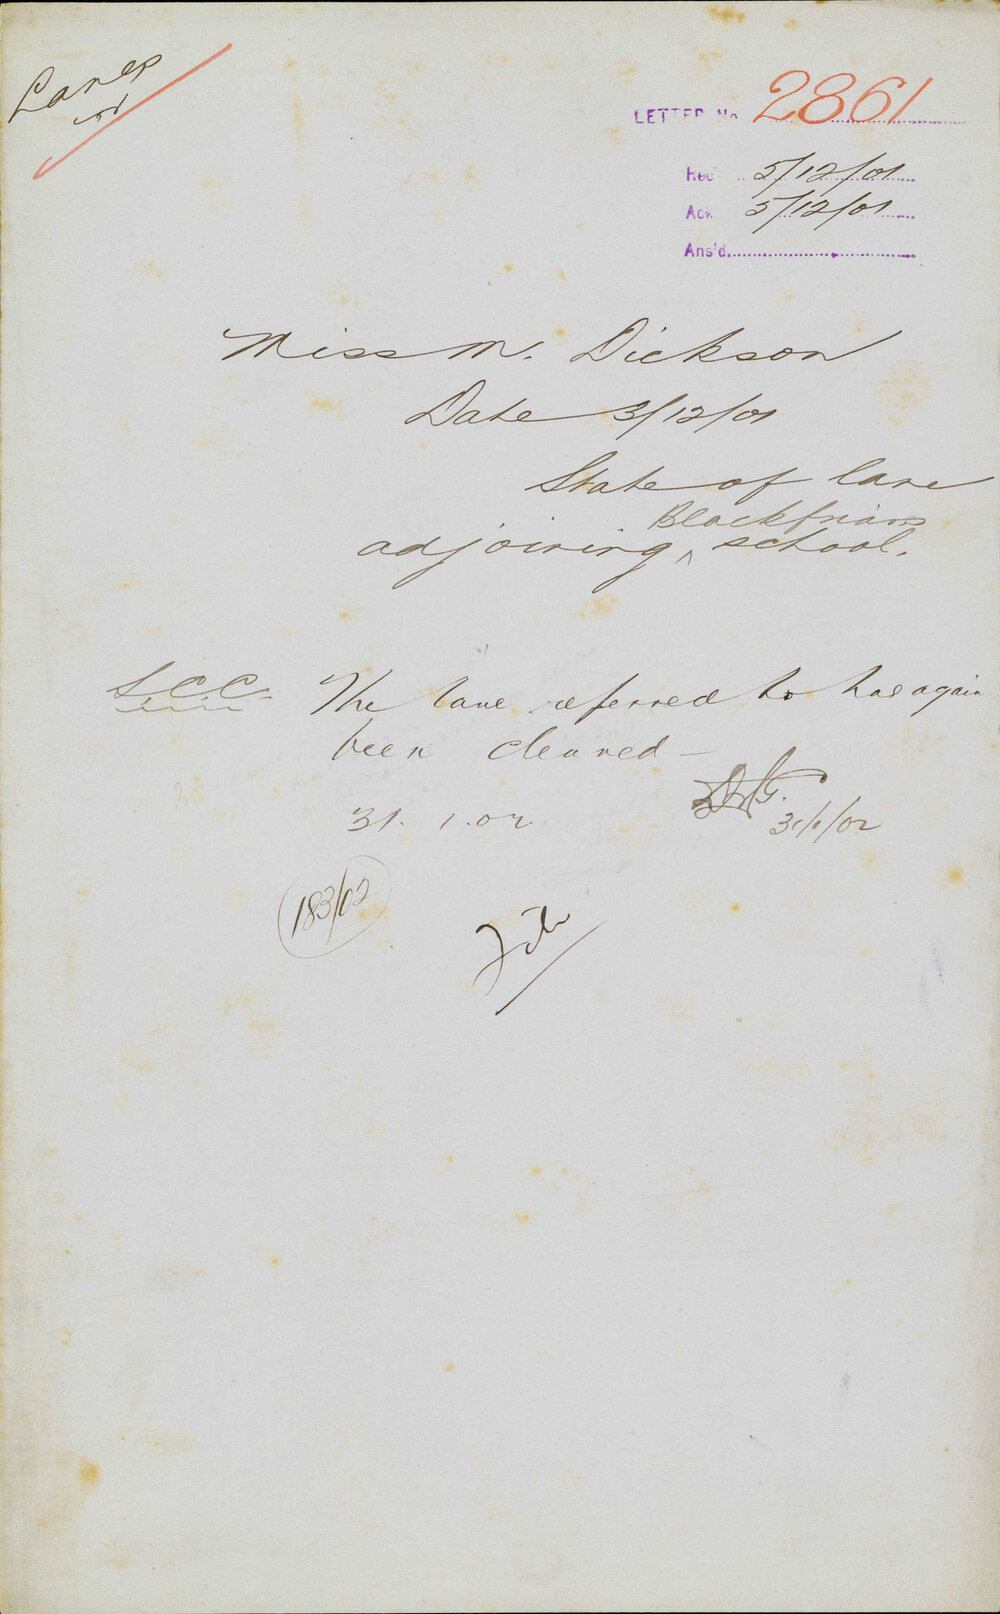 Lanes
LETTER No 2861
Rec 5/12/01
Ack 5/12/01
Ans'd
Miss M. Dickson
Date 3/12/01
State of lane
Blackfriars
adjoining ^ school.
S.C.C. The lane referred to has again
been cleaned —
31. 1. 02
31/1/02
183/02
File